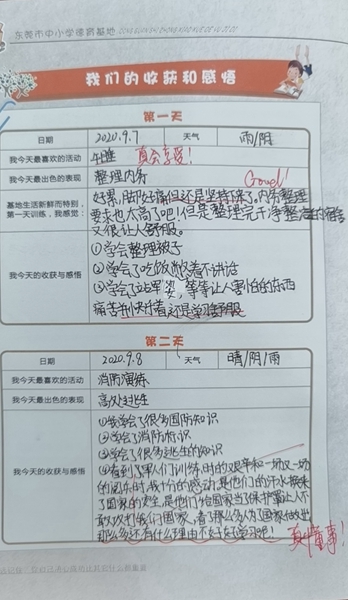 东莞市中小学德育基地
我们的收获和感悟
第一天
日期 2020.9.7 天气 雨/阴
我今天最喜欢的活动 午睡 真会享受!
我今天最出色的表现 整理内务 Good!
基地生活新鲜而特别，第一天训练，我感觉: 好累,脚好痛但还是坚持下来了。内务整理
要求也太高了吧!但是整理完干净整洁的宿舍
又很让人舒服。
我今天的收获与感悟 ①学会整理被子
②学会了吃饭 着不讲话
③学会了站军姿,等等让人害怕的东西
痛苦并快
第二天
日期 2020.9.8 天气 晴/阴/雨
我今天最喜欢的活动 消防演练
我今天最出色的表现 高处逃生
我今天的收获与感悟 ①我学会了很多国防知识
②学会了消防知识
③学会了很多逃生的知识
④看到了军人们训练时的艰辛和一场又一场
的阅兵时,我十分的感动,是他们的汗水换来
了国家的安全,是他们给国家当了保护罩让人不
敢攻打我们国家,看了那么多人为了国家付出
那么多还有什么理由不好好学习呢! 真懂事!